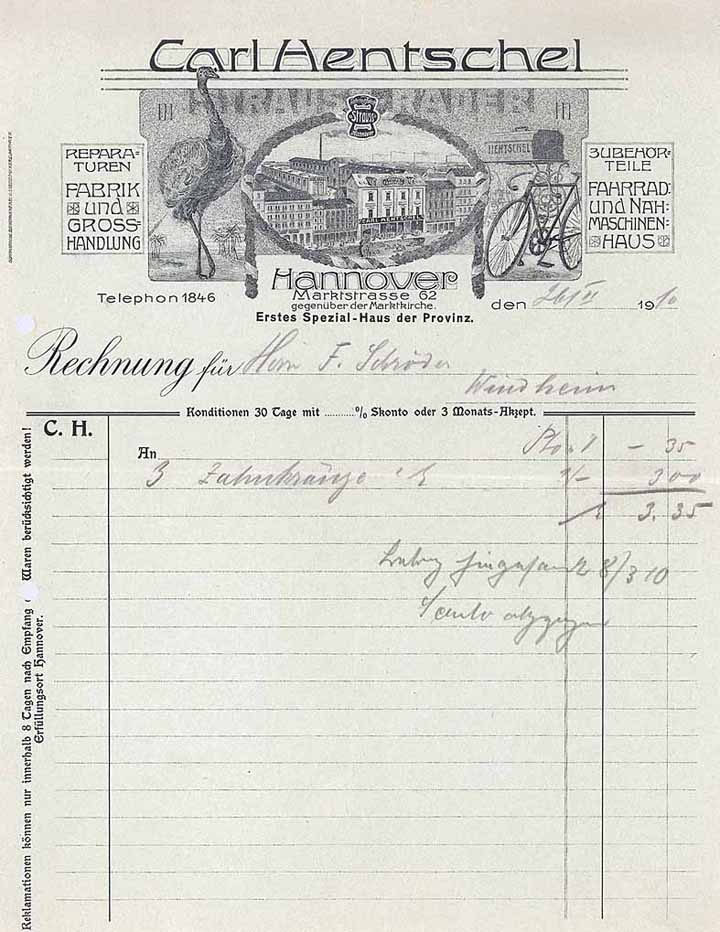 Carl Hentschel
STRAUSS RÄDER
Strauss
HENTSCHEL
REPARA=
TUREN
FABRIK
und
GROSS=
HANDLUNG
ZUBEHÖR=
TEILE
FAHRRAD=
und NÄH=
MASCHINEN=
HAUS
Hannover
Marktstrasse 62
gegenüber der Marktkirche.
Erstes Spezial-Haus der Provinz.
Telephon 1846
den 26/II 1910
Rechnung für Herrn F. Schröder
Windheim
Konditionen 30 Tage mit ..........% Skonto oder 3 Monats-Akzept.
C. H.
An
Pto. - 35
3 Zahnkränze 1/- 300
3.35
8/3 10
Reklamationen können nur innerhalb 8 Tagen nach Empfang Waren berücksichtigt werden!
Erfüllungsort Hannover.